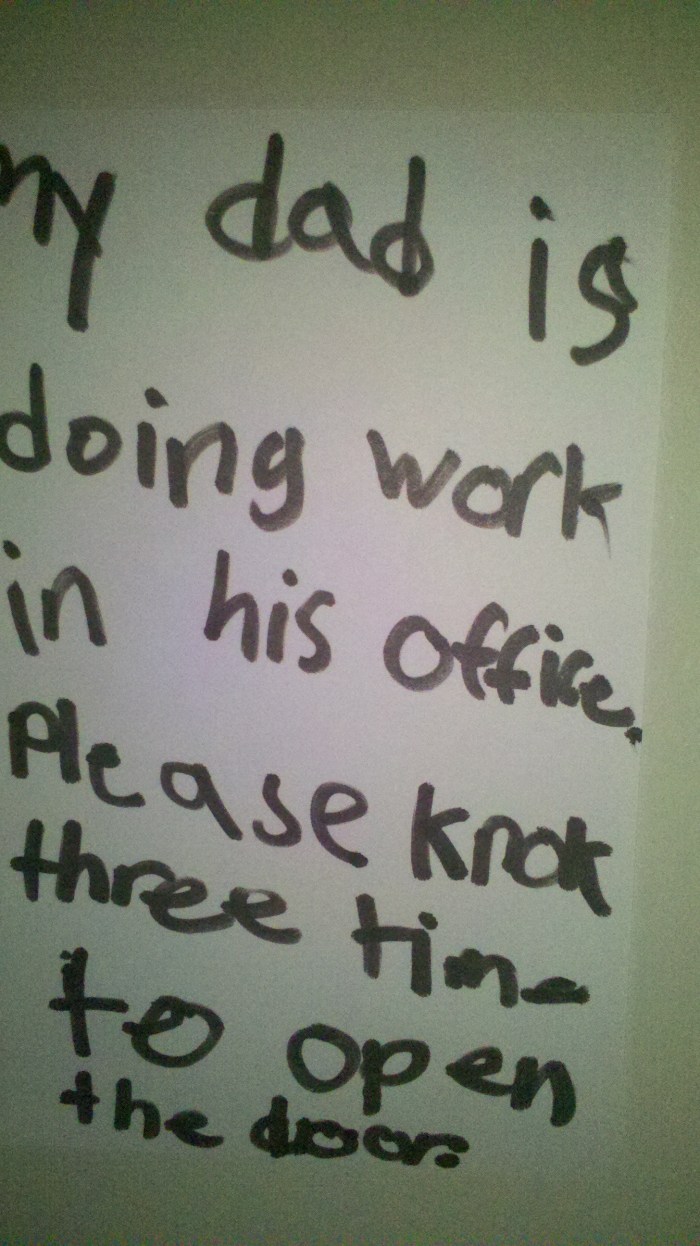 my dad is
doing work
in his office.
Please knok
three time
to open
the door.